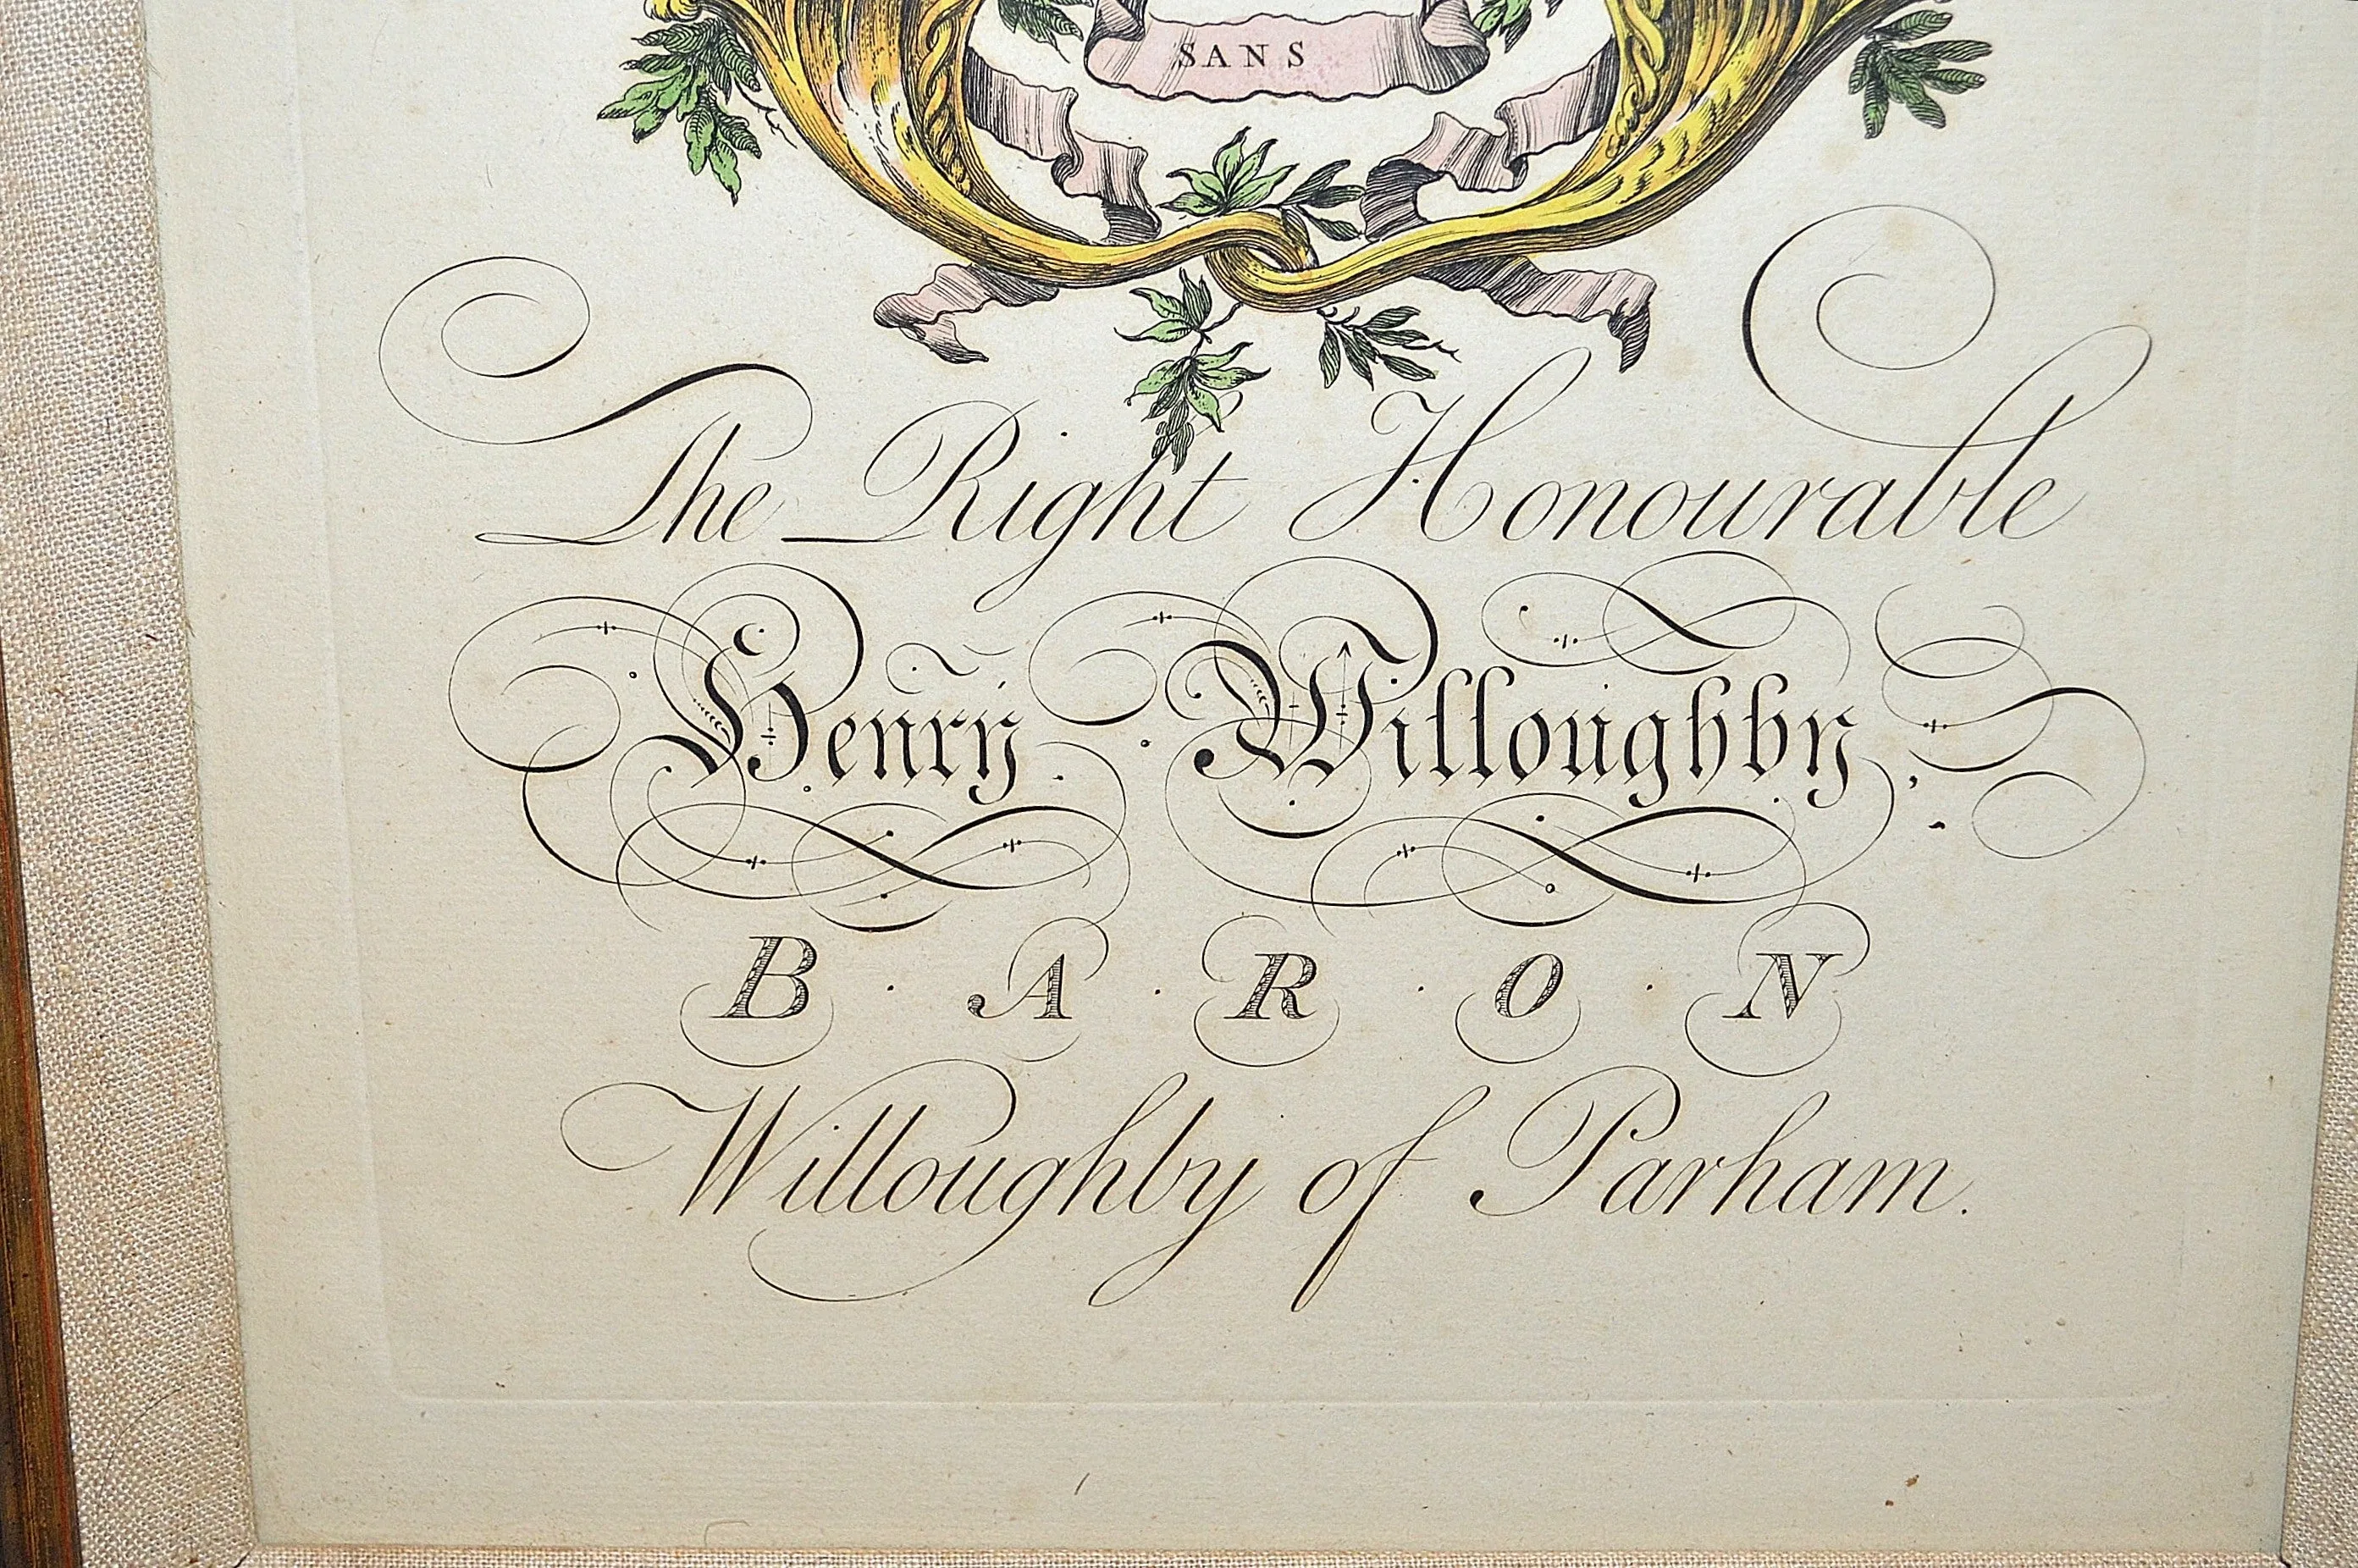 SANS
The Right Honourable
Henry Willoughby,
B·A·R·O·N
Willoughby of Parham.